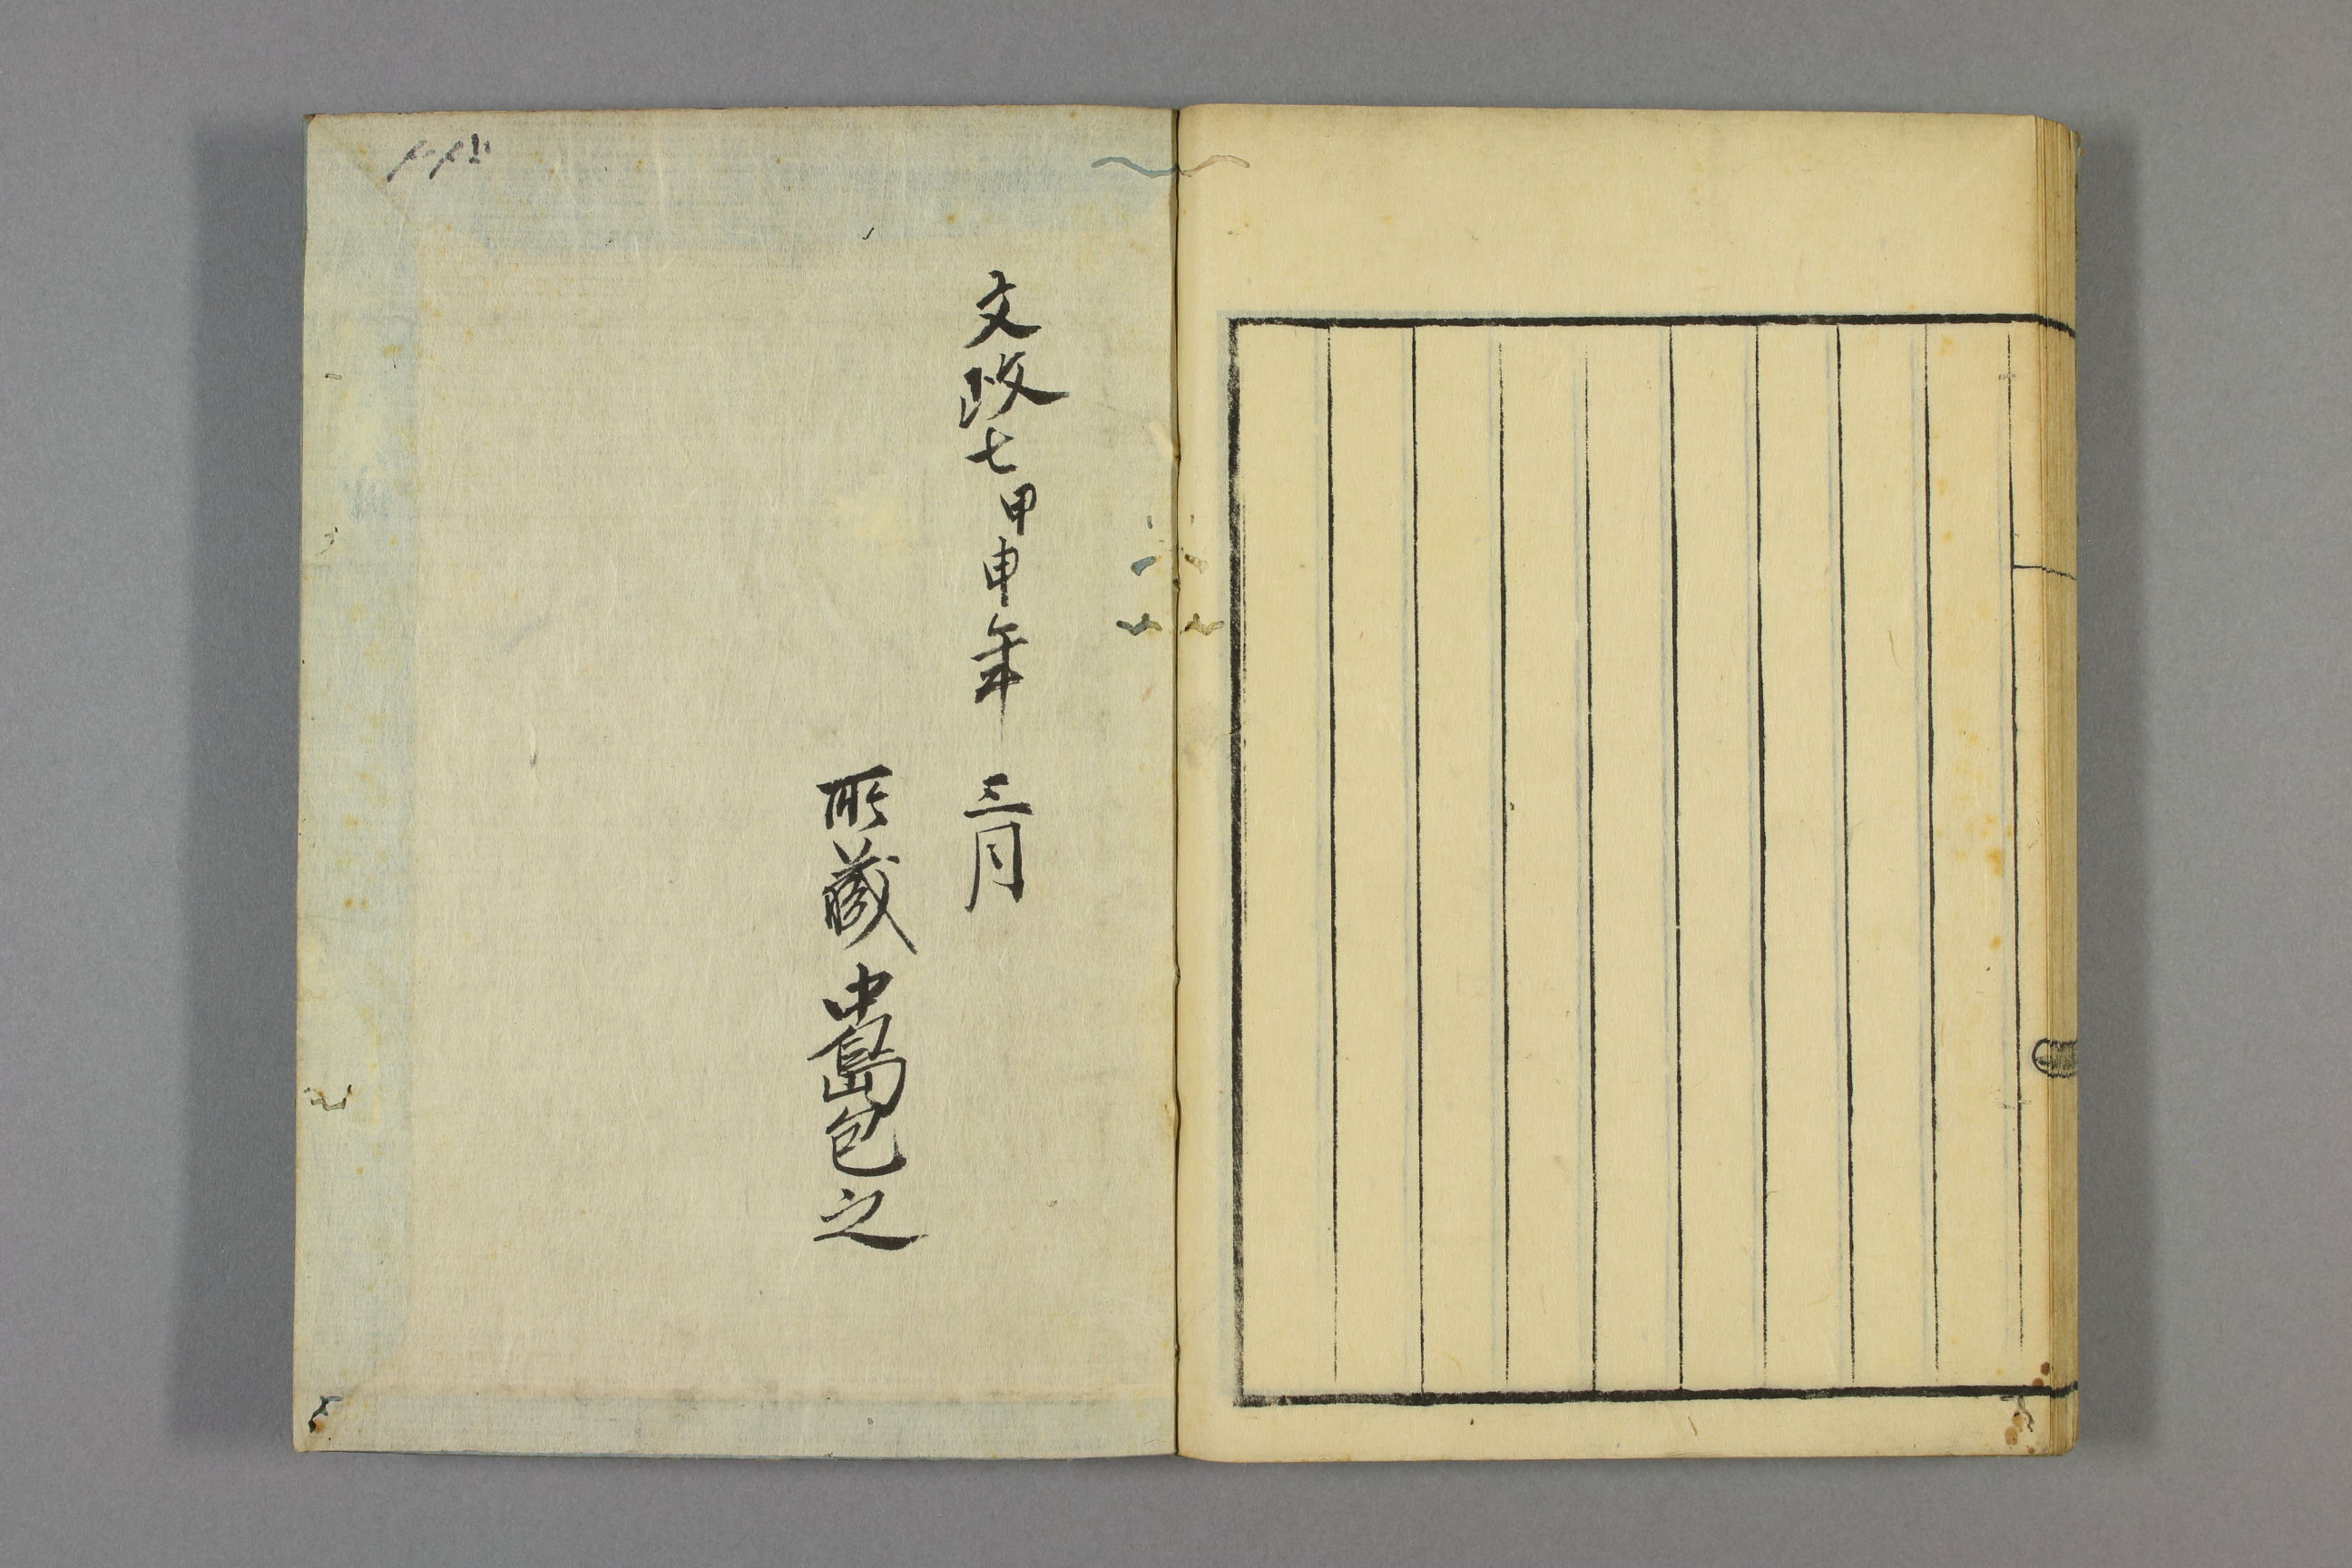 文政七甲申年 三月
所蔵 中島包之